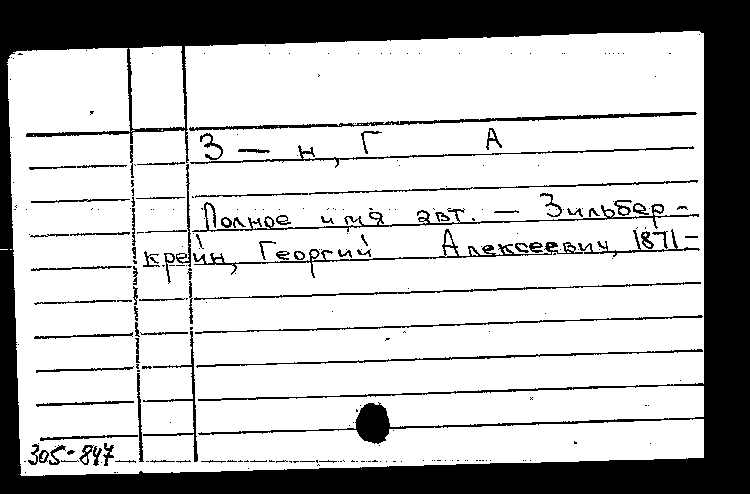 З — н, Г А
Полное имя авт. — Зильбер-
крейн, Георгий Алексеевич, 1871-
305-847